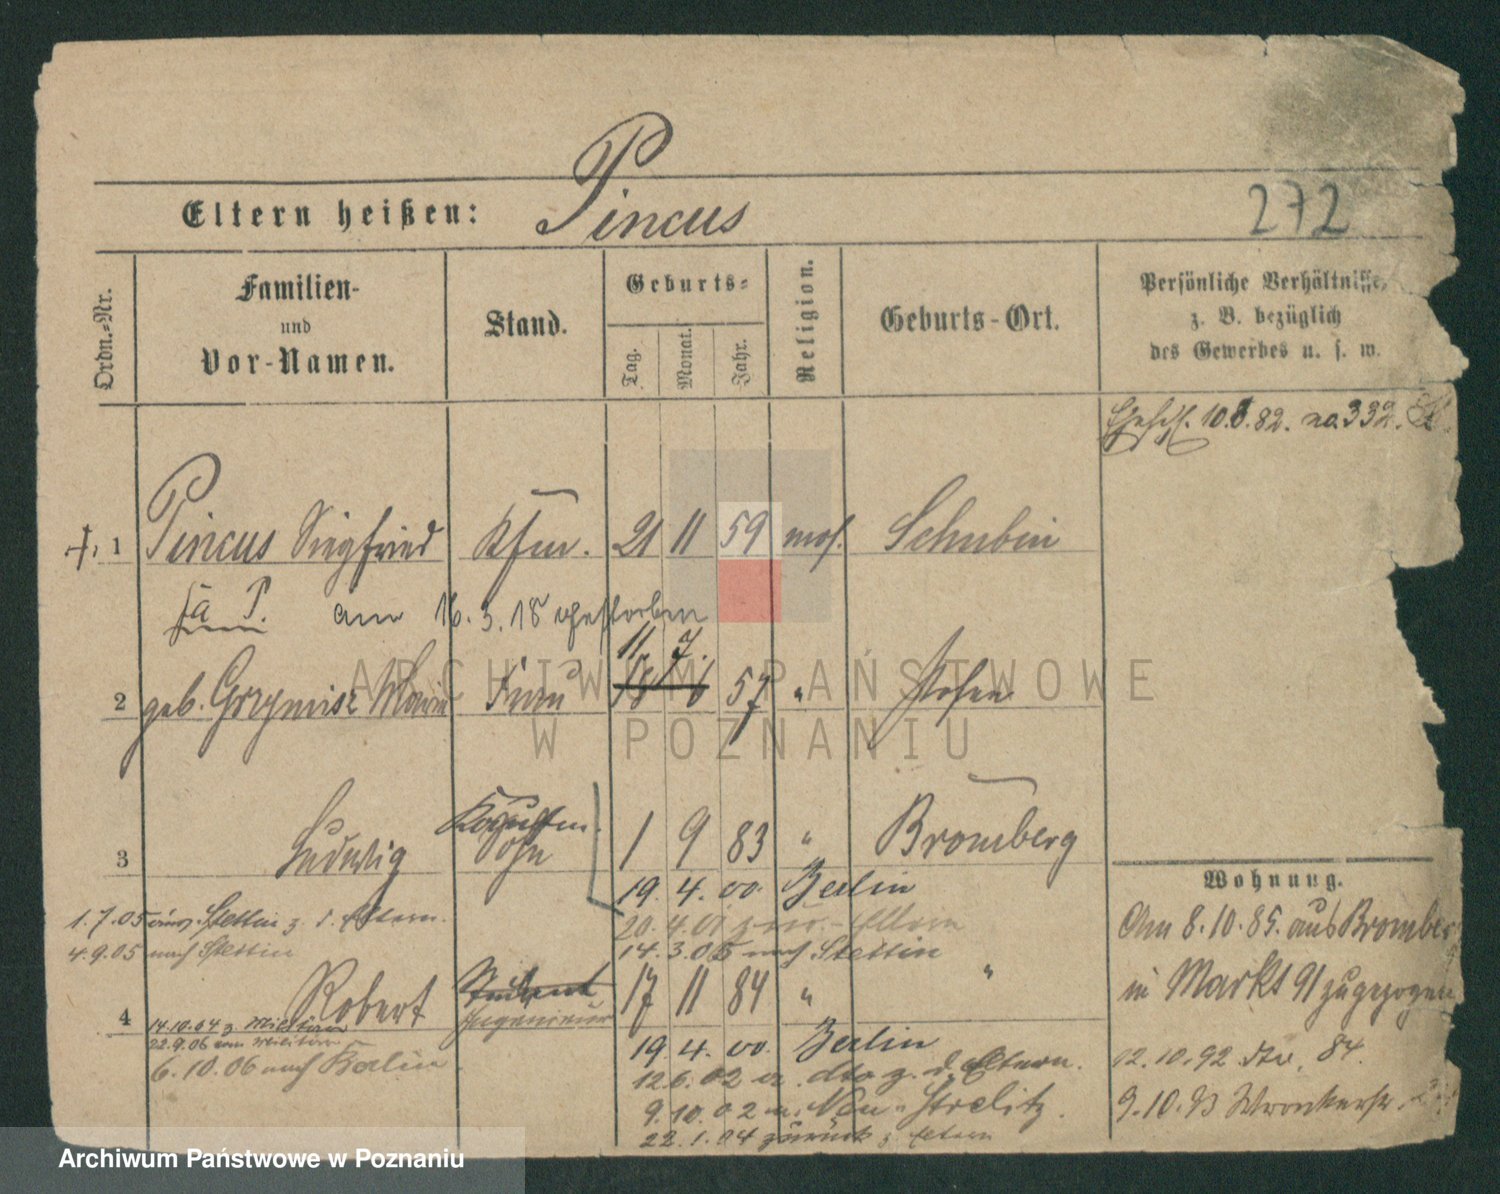 Eltern heißen: Pincus
272
Ordn.-Nr.
Familien-
und
Vor-Namen.
Stand.
Geburts-
Tag.
Monat.
Jahr.
Religion.
Geburts-Ort.
Persönliche Verhältnisse,
z. B. bezüglich
des Gewerbes u. s. w.
82. no. 332.
1 Pincus Siegfried Kfm. 21 11 59 mos. Schubin
fa P. am 16.3.18 gestorben
11. 7.
2 geb. Gorzynisz Marie Frau 18 6 57 " Posen
3 Ludwig Sohn 1 9 83 " Bromberg
19. 4. 00. Berlin
1.7.05 aus Stettin z. d. Eltern.
20.4.01 Eltern
4.9.05 nach Stettin
14.3.05 nach Stettin
4 Robert Student 17 11 84 " "
Ingenieur
14.10.04 z. Militär
22.9.06 vom Militär
6.10.06 nach Berlin
19. 4. 00. Berlin
12.6.02 dto z. d. Eltern.
9.10.02 n. Neu-Strelitz.
22.1.04 zurück z. Eltern
Wohnung.
Am 8.10.85. aus Bromberg
in Markt 91 zugezogen
12.10.92 dto. 84.
9.10.93 Wronkerstr.
ARCHIWUM PAŃSTWOWE
W POZNANIU
Archiwum Państwowe w Poznaniu